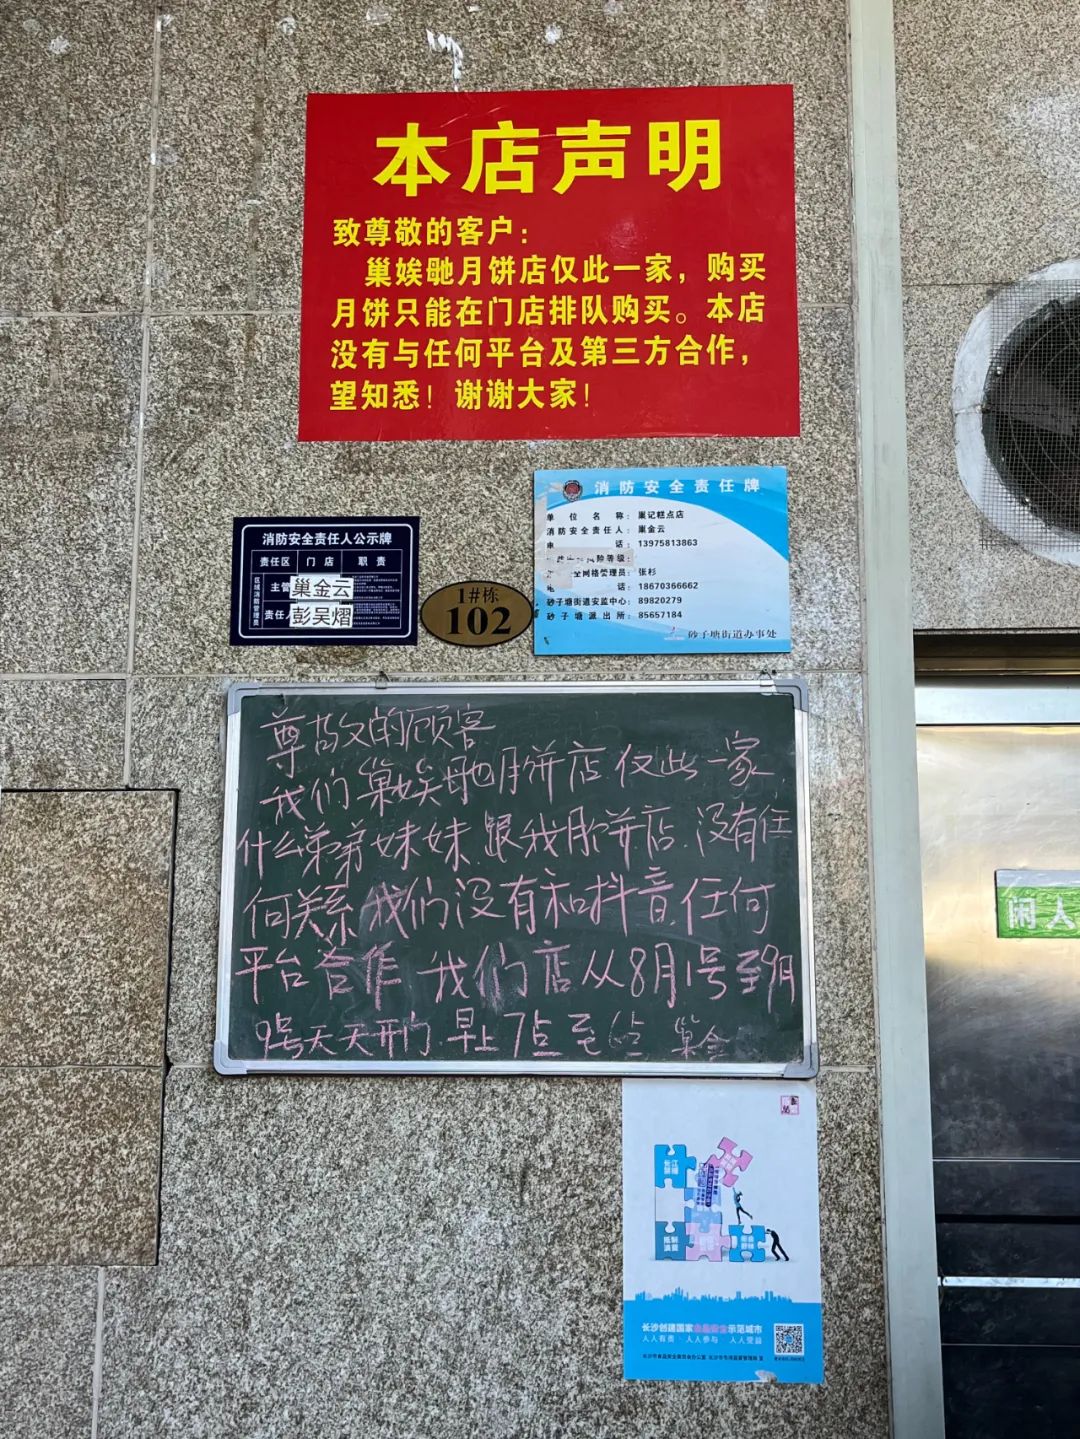 本店声明
致尊敬的客户：
巢娭毑月饼店仅此一家，购买
月饼只能在门店排队购买。本店
没有与任何平台及第三方合作，
望知悉！谢谢大家！
消防安全责任人公示牌
责任区 门店 职责
区域消防管理员
主管 巢金云
责任人 彭吴熠
1#栋
102
消防安全责任牌
单位名称：巢记糕点店
消防安全责任人：巢金云
电话：13975813863
风险等级：
网格管理员：张杉
电话：18670366662
砂子塘街道安监中心：89820279
砂子塘派出所：85657184
砂子塘街道办事处
尊敬的顾客
我们巢娭毑月饼店仅此一家
什么弟弟妹妹跟我月饼店没有任
何关系我们没有和抖音任何
平台合作 我们店从8月1号至9月
9号天天开门 早上7点至 点 巢金
闲人
长江
禁捕
抵制
演费
长沙创建国家食品安全示范城市
人人有责 人人参与 人人受益